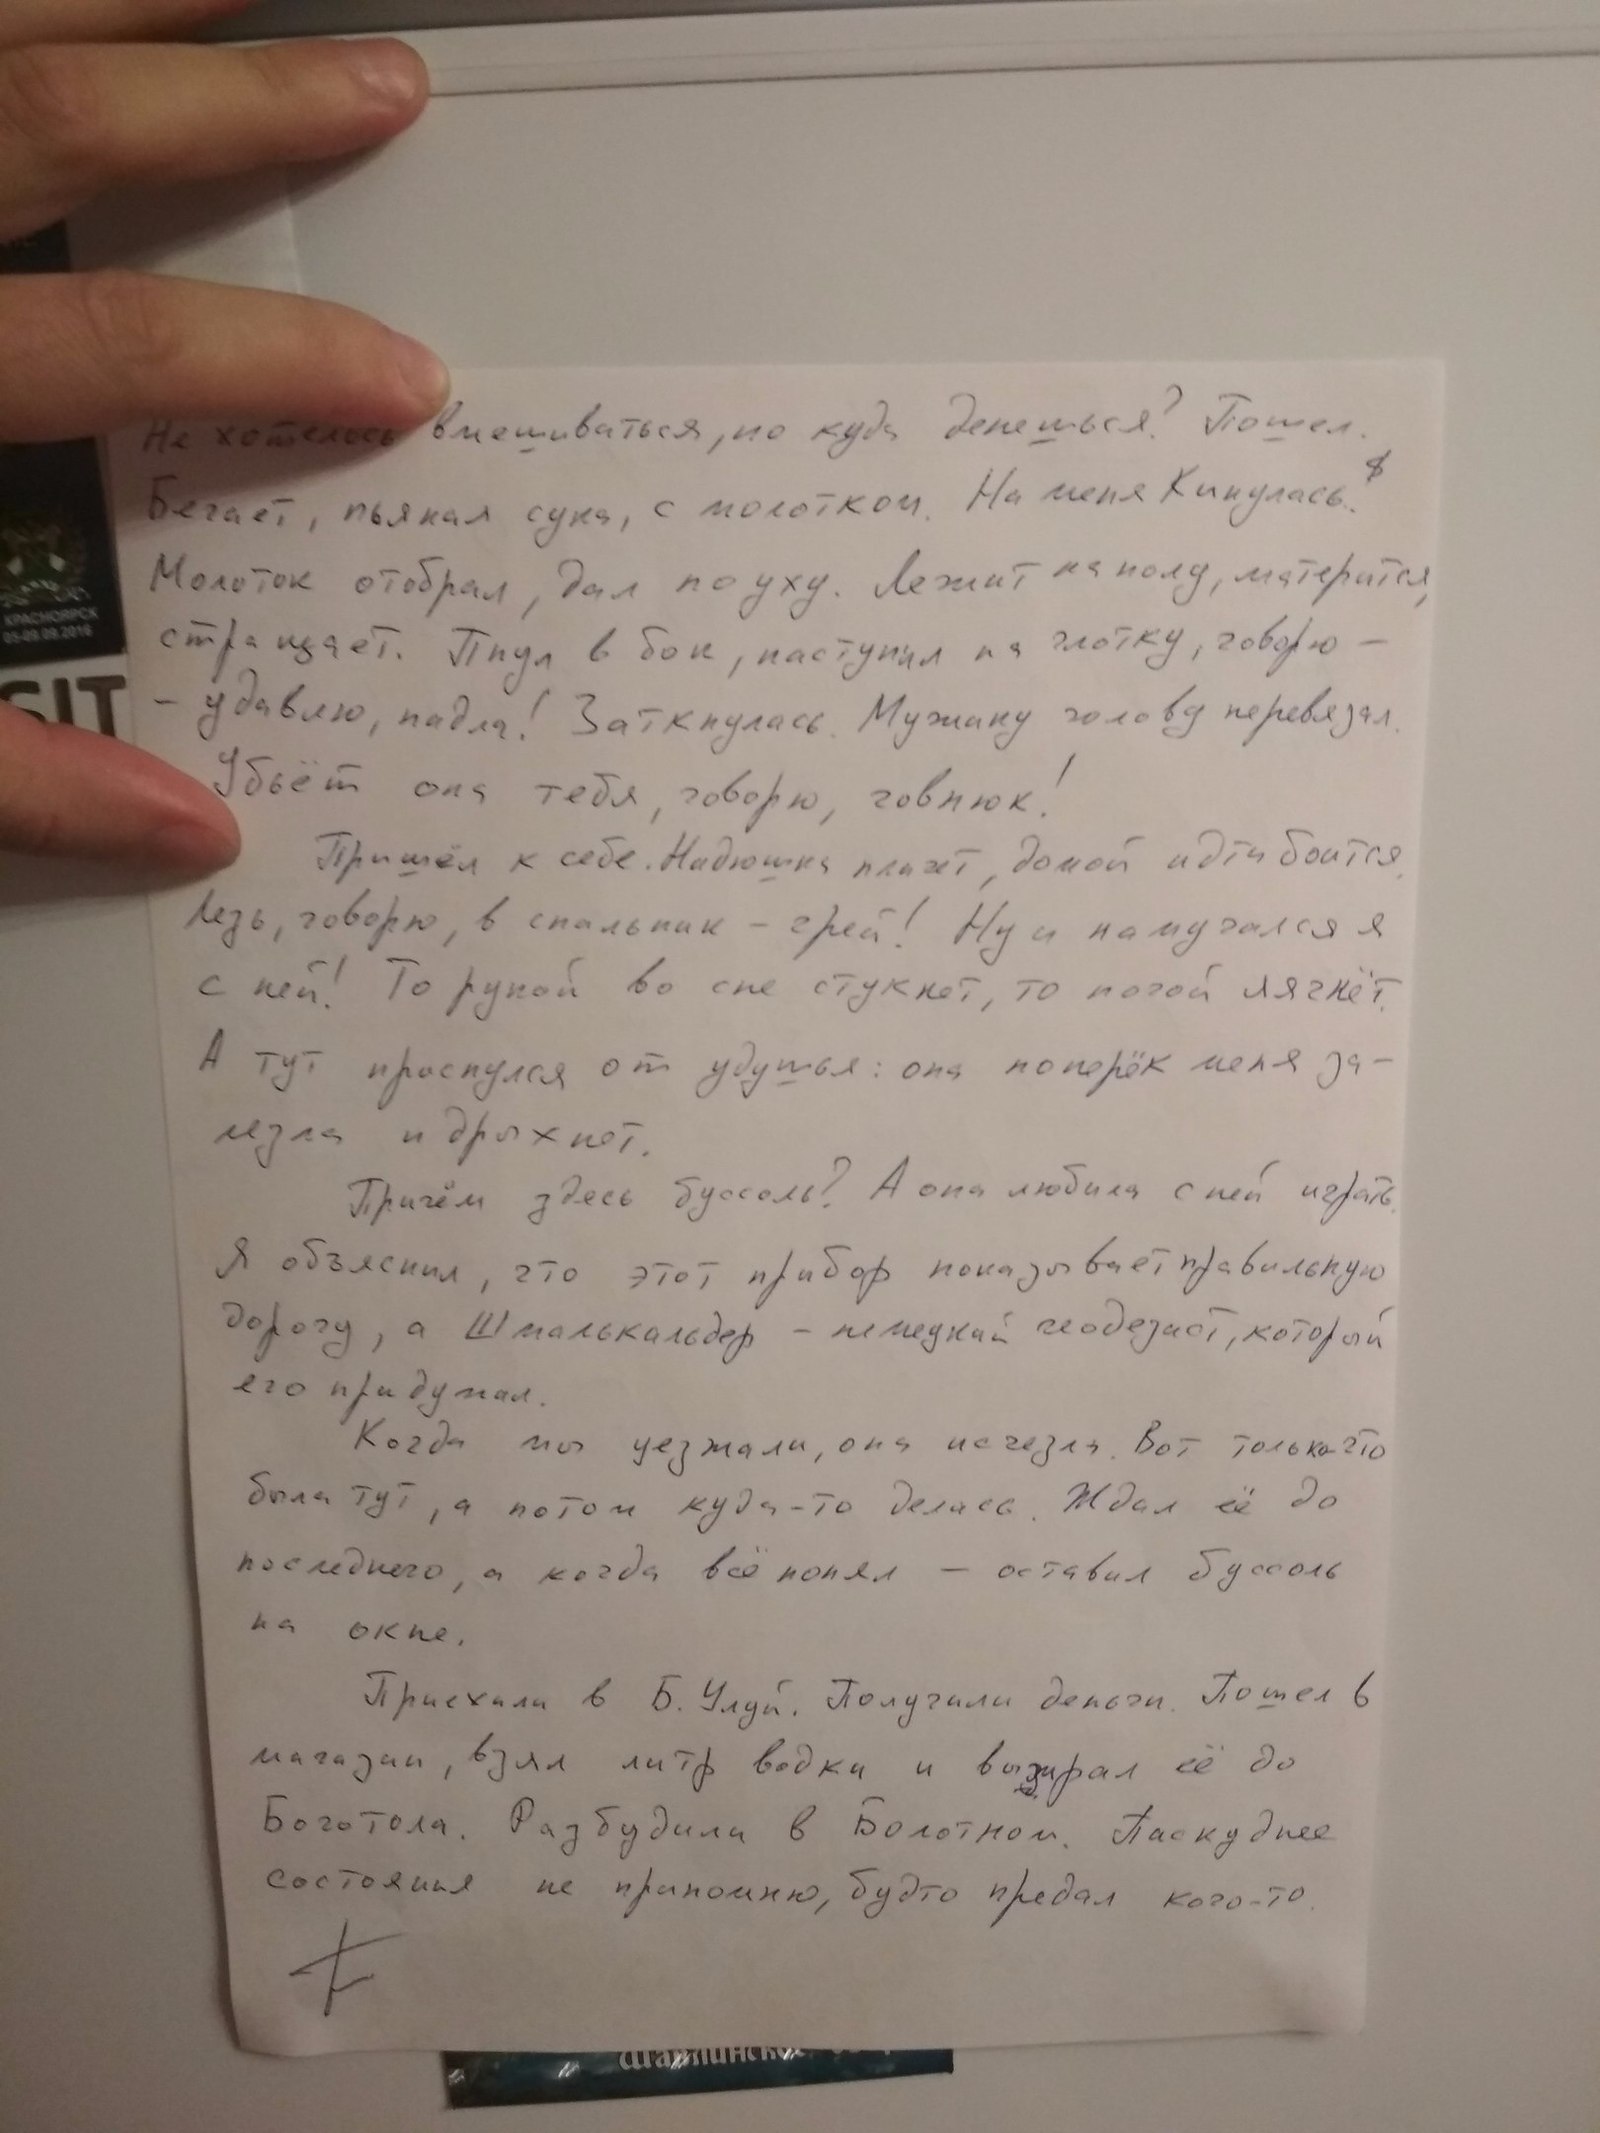 Не хотелось вмешиваться, но куда денешься? Пошел.
Бегает, пьяная сука, с молотком. На меня Кинулась.
Молоток отобрал, дал по уху. Лежит на полу, матерится,
стращает. Пнул в бок, наступил на глотку, говорю –
– удавлю, падла! Заткнулась. Мужику голову перевязал.
Убьёт она тебя, говорю, говнюк!
Пришёл к себе. Надюшка плачет, домой идти боится.
Лезь, говорю, в спальник – грей! Ну и намучался я
с ней! То рукой во сне стукнет, то ногой лягнёт.
А тут проснулся от удушья: она поперёк меня за-
лезла и дрыхнет.
Причём здесь буссоль? А она любила с ней играть.
Я объяснил, что этот прибор показывает правильную
дорогу, а Шмалькальдер – немецкий геодезист, который
его придумал.
Когда мы уезжали, она исчезла. Вот только что
была тут, а потом куда-то делась. Ждал её до
последнего, а когда всё понял – оставил буссоль
на окне.
Приехали в Б. Улуй. Получили деньги. Пошел в
магазин, взял литр водки и выжрал её до
Боготола. Разбудили в Болотном. Паскуднее
состояния не припомню, будто предал кого-то.
КРАСНОЯРСК
05-09.09.2016
SIT